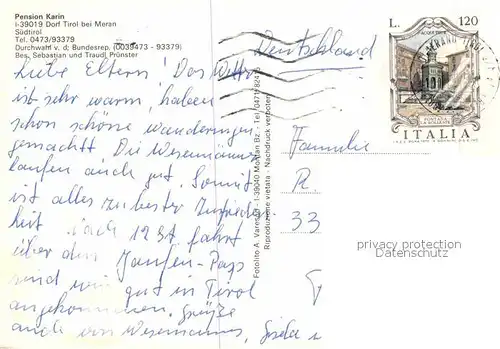 Pension Karin
I-39019 Dorf Tirol bei Meran
Südtirol
Tel. 0473/93379
Durchwahl v, d; Bundesrep. (0039473 - 93379)
Bes. Sebastian und Traudl Prünster
Liebe Eltern! Das Wetter
ist sehr warm, haben
schon schöne Wanderungen
gemacht. Die
laufen auch gut. Somit
ist alles zu bester Zufrieden-
heit. Nach 12 St. fahrt
über den Jaufen-Pass
sind wir gut in Tirol
angekommen. Grüße
auch von
Deutschland
Familie
R.
33
Fotolito A. Varesco - I-39040 Montan Bz. - Tel. 0471/82415
Riproduzione vietata - Nachdruck verboten
L. 120
FONTANA
ITALIA
privacy protection
Datenschutz